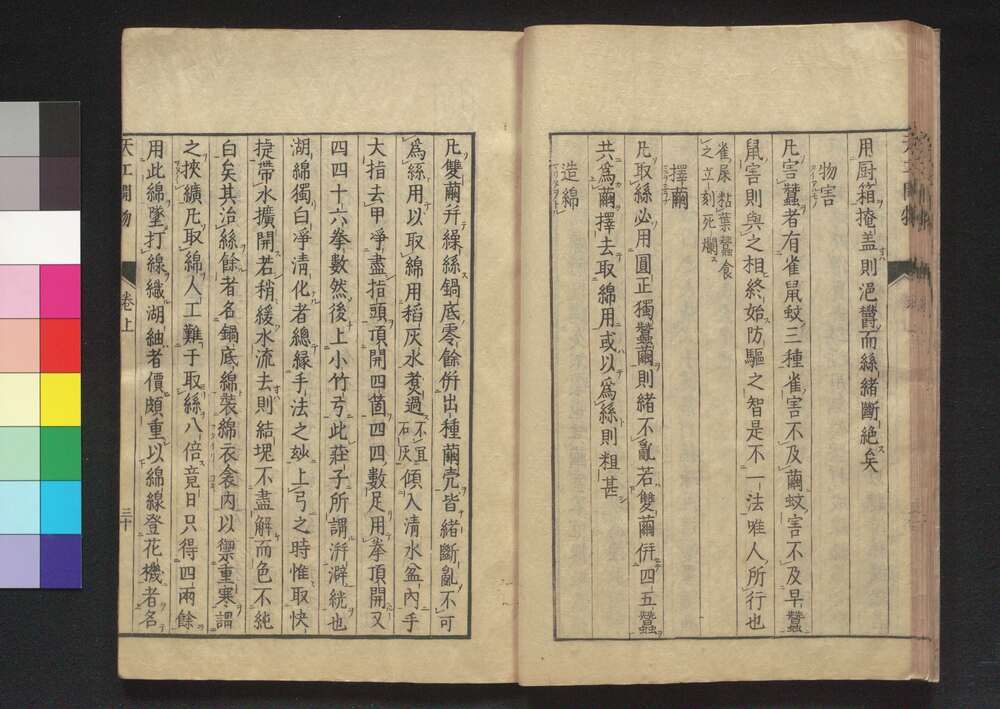 用厨箱掩盖則浥欝而絲緒斷絶矣
物害
凡害蠶者有雀鼠蚊三種雀害不及繭蚊害不及早蠶
鼠害則與之相終始防驅之智是不一法唯人所行也
雀屎粘葉蠶食
之立刻死爛
擇繭
凡取絲必用圓正獨蠶繭則緒不亂若雙繭倂四五蠶
共爲繭擇去取綿用或以爲絲則粗甚
造綿
凡雙繭幷繰絲鍋底零餘倂出種繭壳皆緒斷亂不可
爲絲用以取綿用稻灰水煑過不宜石灰傾入清水盆內手
大指去甲凈盡指頭頂開四箇四四數足用拳頂開又
四四十六拳數然後上小竹弓此莊子所謂洴澼絖也
湖綿獨白凈清化者總緣手法之玅上弓之時惟取快
捷帶水擴開若稍緩水流去則結塊不盡解而色不純
白矣其治絲餘者名鍋底綿裝綿衣衾內以禦重寒謂
之挾纊凡取綿人工難于取絲八倍竟日只得四兩餘
用此綿墜打線織湖紬者價頗重以綿線登花機者名
天工開物
卷上
三十